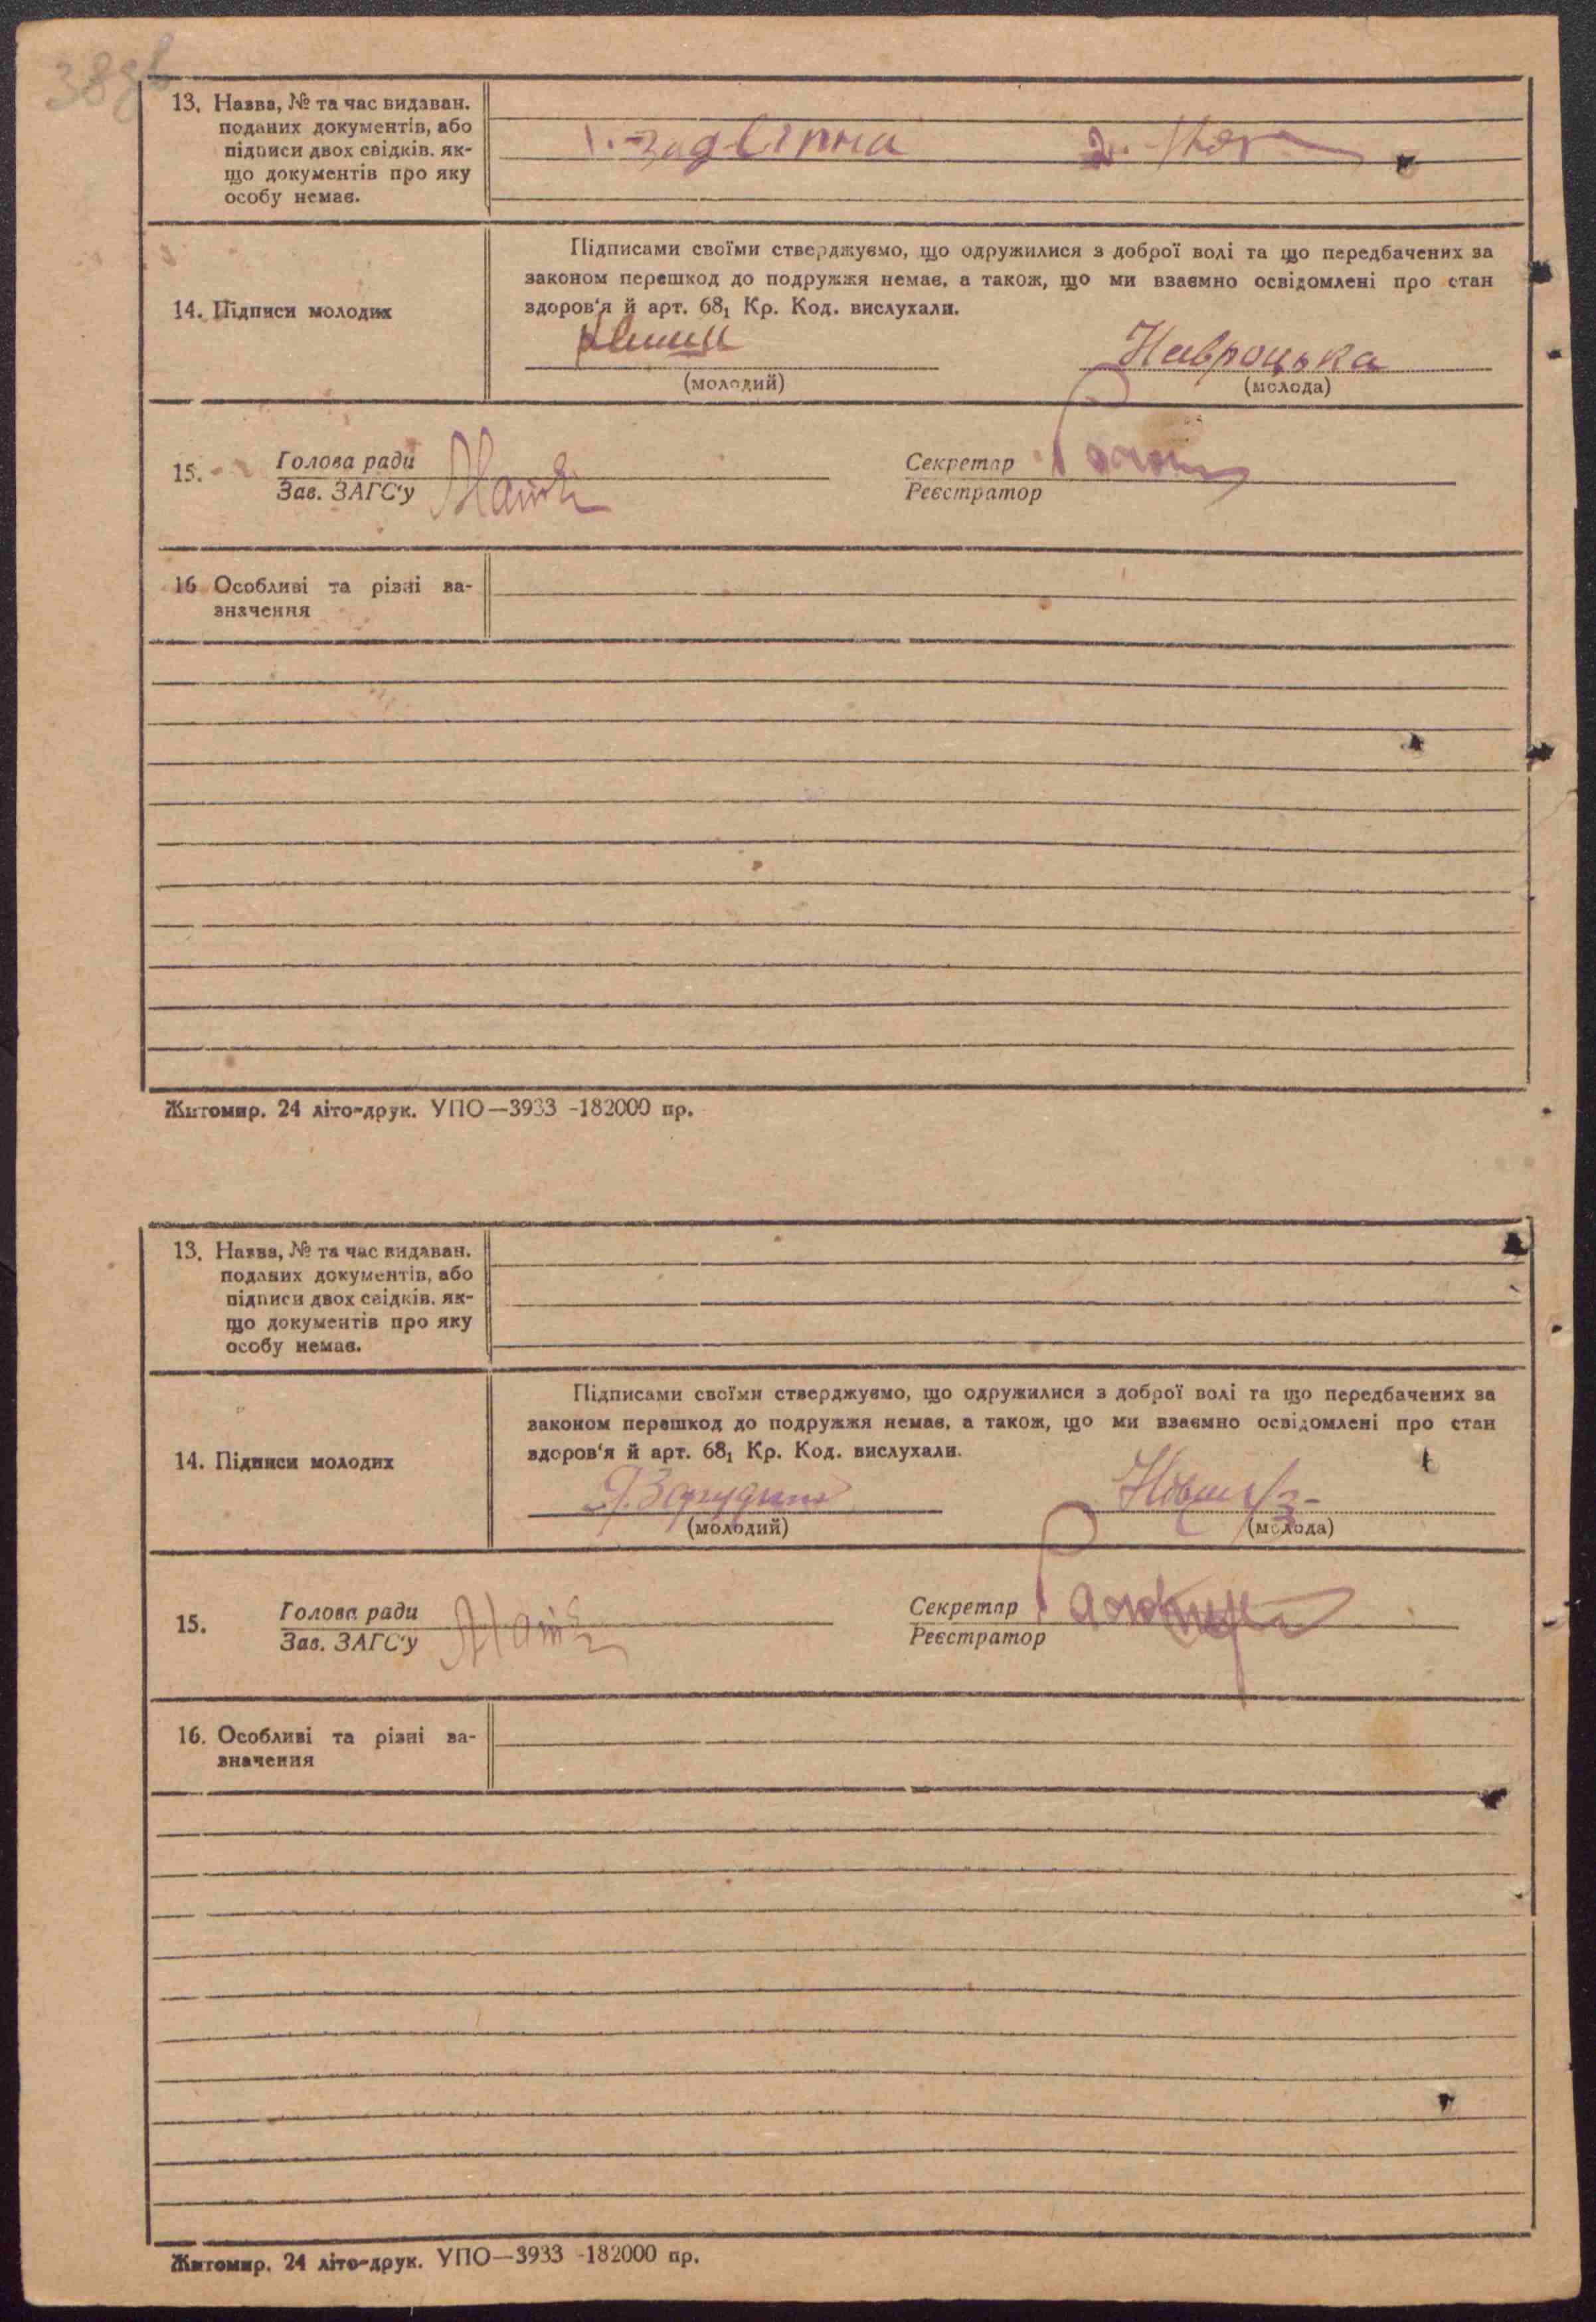 38зв
13. Назва, № та час видаван.
поданих документів, або
підписи двох свідків, як-
що документів про яку
особу немає.
1. 2.
14. Підписи молодих
Підписами своїми стверджуємо, що одружилися з доброї волі та що передбачених за
законом перешкод до подружжя немає, а також, що ми взаємно освідомлені про стан
здоров'я й арт. 68₁ Кр. Код. вислухали.
Навроцька
(молодий) (молода)
15. Голова ради
Зав. ЗАГС'у
Секретар
Реєстратор
16 Особливі та різні за-
значення
Житомир. 24 літо-друк. УПО—3933 -182000 пр.
13. Назва, № та час видаван.
поданих документів, або
підписи двох свідків, як-
що документів про яку
особу немає.
14. Підписи молодих
Підписами своїми стверджуємо, що одружилися з доброї волі та що передбачених за
законом перешкод до подружжя немає, а також, що ми взаємно освідомлені про стан
здоров'я й арт. 68₁ Кр. Код. вислухали.
(молодий) (молода)
15. Голова ради
Зав. ЗАГС'у
Секретар
Реєстратор
16. Особливі та різні за-
значення
Житомир. 24 літо-друк. УПО—3933 -182000 пр.